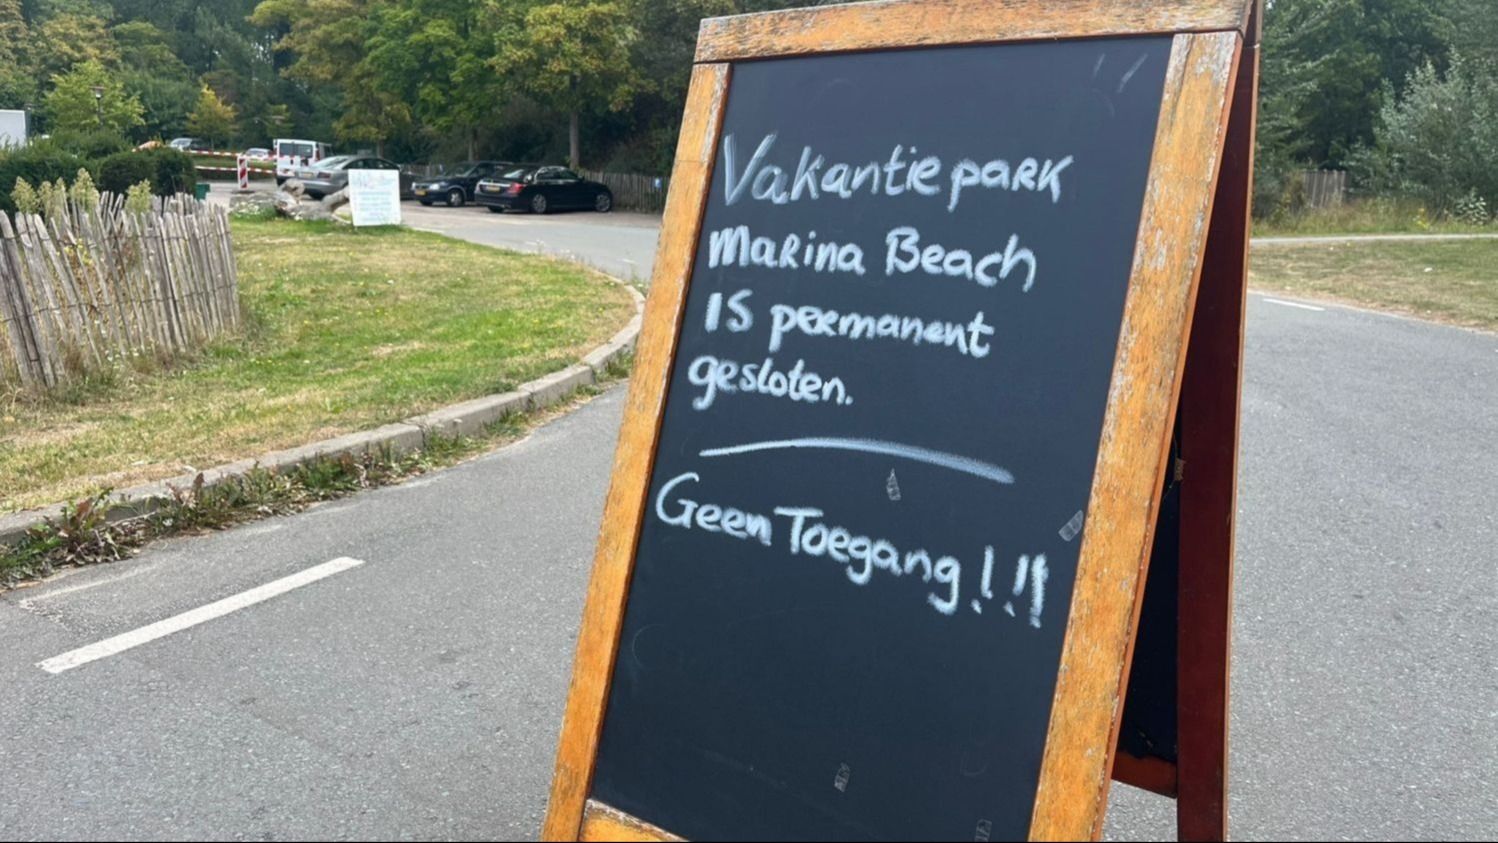 Vakantiepark
Marina Beach
IS permanent
gesloten.
Geen Toegang!!!